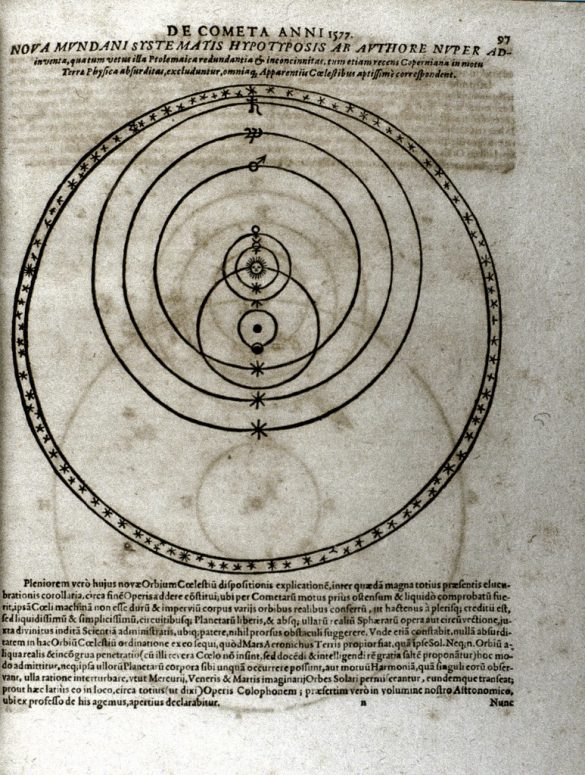 DE COMETA ANNI 1577.
97
NOVA MVNDANI SYSTEMATIS HYPOTYPOSIS AB AVTHORE NUPER AD-
inventa, qua tum vetus illa Ptolemaica redundantia & inconcinnitas, tum etiam recens Coperniana in motu
Terræ Physica absurditas, excluduntur, omniaq, Apparentiis Cœlestibus aptissimè correspondent.
Pleniorem verò hujus novæ Orbium Cœlestiũ dispositionis explicationẽ, inter quædã magna totius præsentis elucu-
brationis corollaria, circa finẽ Operis addere cõstitui, ubi per Cometarũ motus prius ostensum & liquidò comprobatũ fue-
rit, ipsã Cœli machinã non esse durũ & impervium corpus varijs orbibus realibus confertũ, ut hactenus à plerisq; creditũ est,
sed liquidissimũ & simplicissimũ, circuitibusq; Planetarũ liberis, & absq; ullarũ realiũ Sphærarũ opera aut circũvectione, ju-
xta divinitus inditã Scientiã administratis, ubiq; patere, nihil prorsus obstaculi suggerere. Vnde etiã constabit, nullã absurdi-
tatem in hac Orbiũ Cœlestiũ ordinatione ex eo sequi, quòd Mars Acronichus Terris propior fiat, quã ipse Sol. Neq; n. Orbiũ a-
liqua realis & incõgrua penetratio (cũ illi revera Cœlo nõ insint, sed docẽdi & intelligendi rẽ gratia saltẽ proponãtur) hoc mo-
do admittitur, neq; ipsa ullorũ Planetarũ corpora sibi unquã occurrere possunt, aut motuũ Harmoniã, quã singuli eorũ obser-
vant, ulla ratione interturbare, vtut Mercurij, Veneris & Martis imaginarij Orbes Solari permisceantur, eundemque transeãt;
prout hæc latius eo in loco, circa totius (ut dixi) Operis Colophonem; præsertim verò in volumine nostro Astronomico,
ubi ex professo de his agemus, apertius declarabitur.
n
Nunc